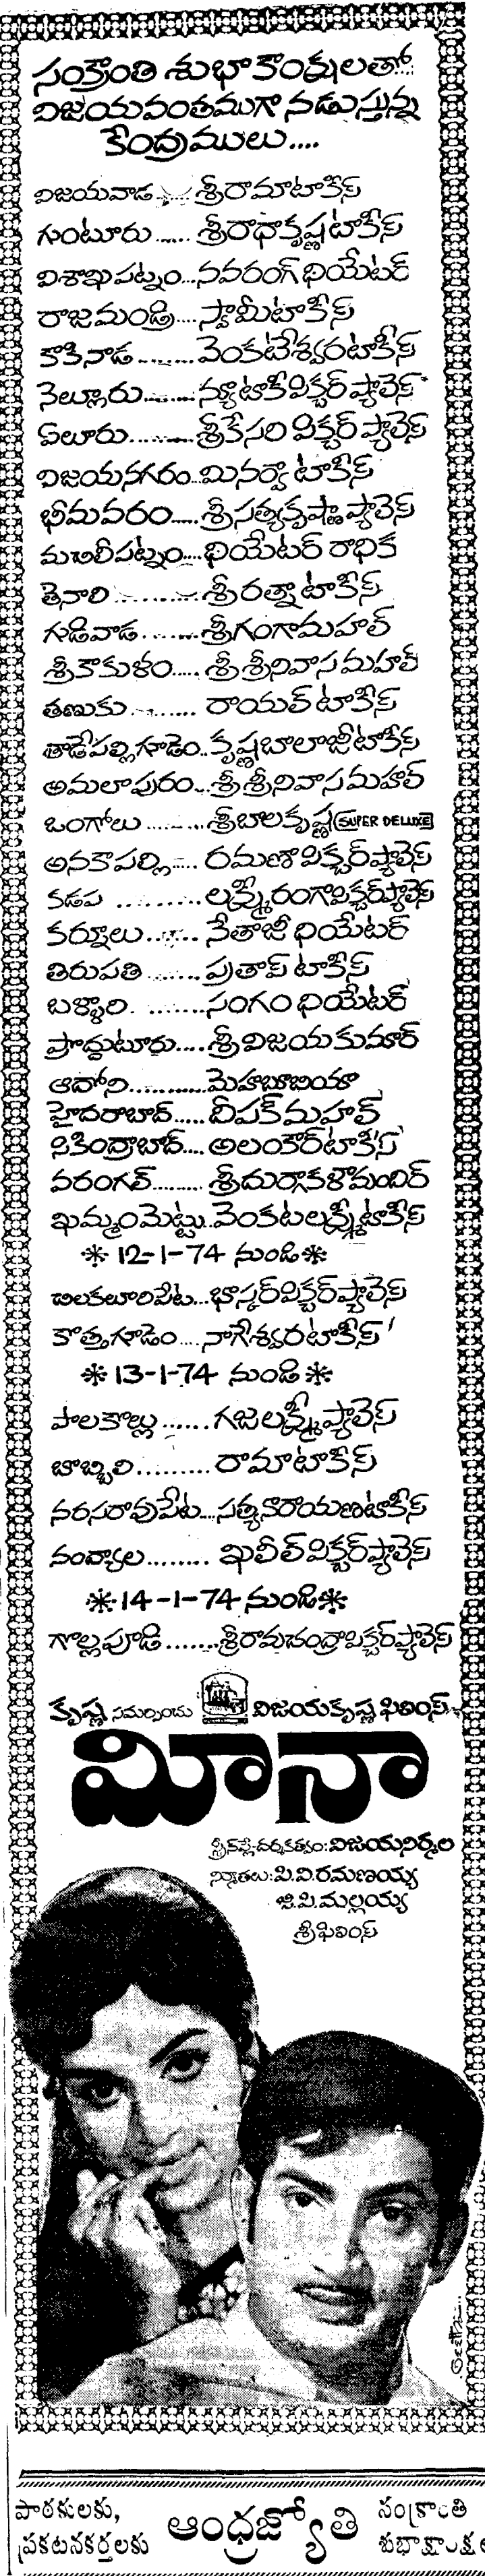 సంక్రాంతి శుభాకాంక్షలతో..
విజయవంతముగా నడుస్తున్న
కేంద్రములు....
విజయవాడ..... శ్రీరామాటాకీస్
గుంటూరు...... శ్రీరాధాకృష్ణటాకీస్
విశాఖపట్నం...నవరంగ్ థియేటర్
రాజమండ్రి....స్వామీటాకీస్
కాకినాడ........వెంకటేశ్వరటాకీస్
నెల్లూరు........న్యూటాకీపిక్చర్ ప్యాలెస్
ఏలూరు........శ్రీకేసరి పిక్చర్ ప్యాలెస్
విజయనగరం..మినర్వాటాకీస్
భీమవరం.....శ్రీసత్యకృష్ణాప్యాలెస్
మచిలీపట్నం...థియేటర్ రాధిక
తెనాలి..........శ్రీరత్నాటాకీస్
గుడివాడ.......శ్రీగంగామహల్
శ్రీకాకుళం.....శ్రీశ్రీనివాసమహల్
తణుకు......... రాయల్ టాకీస్
తాడేపల్లిగూడెం..కృష్ణబాలాజీటాకీస్
అమలాపురం...శ్రీశ్రీనివాసమహల్
ఒంగోలు.........శ్రీబాలకృష్ణ SUPER DELUXE
అనకాపల్లి.... రమణాపిక్చర్ ప్యాలెస్
కడప ..........లక్ష్మీరంగాపిక్చర్ ప్యాలెస్
కర్నూలు....... నేతాజీ థియేటర్
తిరుపతి....... ప్రతాప్ టాకీస్
బళ్ళారి. .......సంగం థియేటర్
ప్రొద్దుటూరు.... శ్రీ విజయకుమార్
ఆదోని...........మెహబూబియా
హైదరాబాద్..... దీపక్ మహల్
సికింద్రాబాద్.... అలంకార్ టాకీస్
వరంగల్......... శ్రీదుర్గాకళామందిర్
ఖమ్మంమెట్టు..వెంకటలక్ష్మీటాకీస్
* 12-1-74 నుండి *
చిలకలూరిపేట...భాస్కర్ పిక్చర్ ప్యాలెస్
కొత్తగూడెం....నాగేశ్వరటాకీస్
* 13-1-74 నుండి *
పాలకొల్లు......గజలక్ష్మీప్యాలెస్
బొబ్బిలి.........రామాటాకీస్
నరసరావుపేట...సత్యనారాయణటాకీస్
నంద్యాల........ ఖలీల్ పిక్చర్ ప్యాలెస్
* 14-1-74 నుండి *
గొల్లపూడి.......శ్రీరామచంద్రాపిక్చర్ ప్యాలెస్
కృష్ణ సమర్పించు విజయకృష్ణ ఫిలింస్
మీనా
స్క్రీన్ ప్లే-దర్శకత్వం: విజయనిర్మల
నిర్మాతలు: పి.వి.రమణయ్య
జి.పి.మల్లయ్య
శ్రీఫిలింస్
పాఠకులకు,
ప్రకటనకర్తలకు
ఆంధ్రజ్యోతి
సంక్రాంతి
శుభాకాంక్షలు